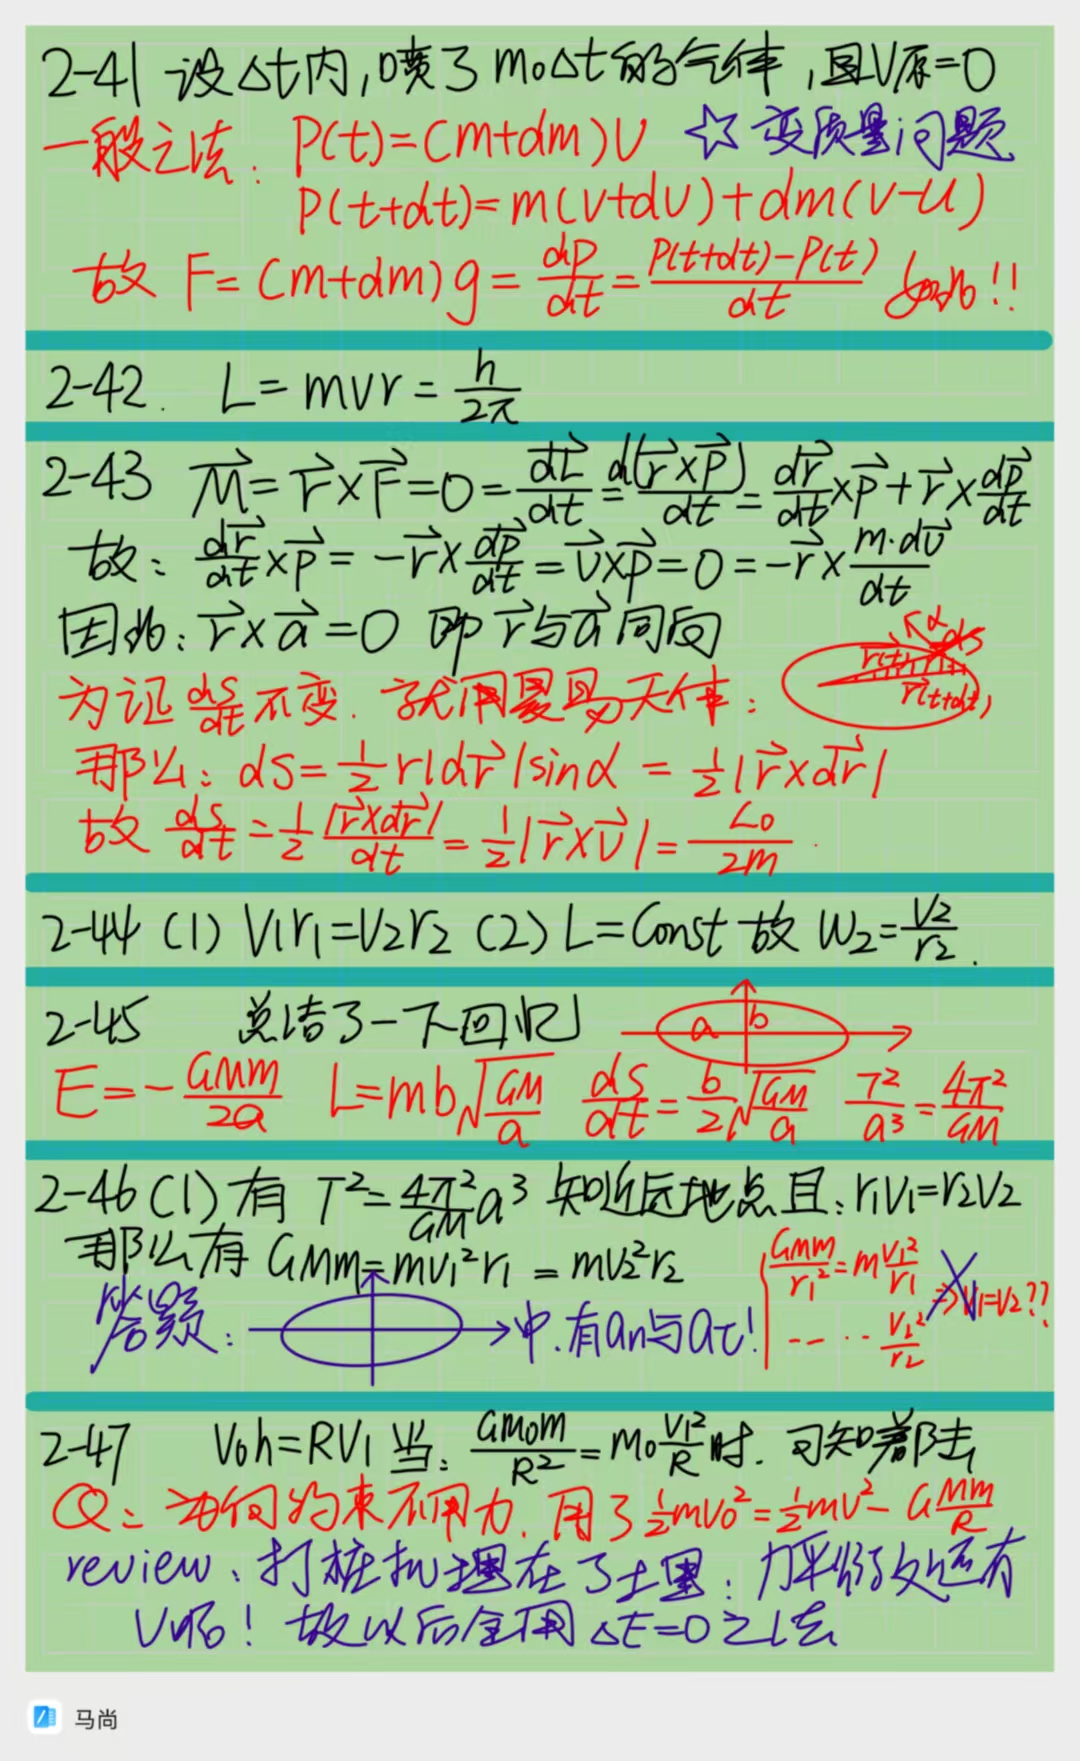 2-41 设Δt内,喷了m₀Δt的气体,且V原=0
一般之法: P(t)=(m+dm)v ☆ 变质量问题
P(t+dt)=m(v+dv)+dm(v-u)
故 F=(m+dm)g=\frac{dP}{dt}=\frac{P(t+dt)-P(t)}{dt} 如此!!
2-42. L=mvr=\frac{h}{2π}
2-43 \vec{M}=\vec{r}×\vec{F}=0=\frac{d\vec{L}}{dt}=\frac{d(\vec{r}×\vec{P})}{dt}=\frac{d\vec{r}}{dt}×\vec{P}+\vec{r}×\frac{d\vec{p}}{dt}
故: \frac{d\vec{r}}{dt}×\vec{p}=-\vec{r}×\frac{d\vec{p}}{dt}=\vec{v}×\vec{p}=0=-\vec{r}×\frac{m·d\vec{v}}{dt}
因此: \vec{r}×\vec{a}=0 即\vec{r}与\vec{a}同向
α ds
r(t)
r(t+dt)
为证\frac{ds}{dt}不变. 就用曼昂天体:
那么: ds=\frac{1}{2}r|d\vec{r}|sinα=\frac{1}{2}|\vec{r}×d\vec{r}|
故 \frac{ds}{dt}=\frac{1}{2}\frac{|\vec{r}×d\vec{r}|}{dt}=\frac{1}{2}|\vec{r}×\vec{v}|=\frac{L₀}{2m}.
2-44 (1) V₁r₁=V₂r₂ (2) L=Const 故 W₂=\frac{V₂}{r₂}.
2-45 总结了一下回忆
a b
E=-\frac{GMm}{2a} L=mb\sqrt{\frac{GM}{a}} \frac{ds}{dt}=\frac{b}{2}\sqrt{\frac{GM}{a}} \frac{T²}{a³}=\frac{4π²}{GM}
2-46 (1) 有 T²=\frac{4π²}{GM}a³ 知近远地点且: r₁v₁=r₂v₂
那么有 GMm=mv₁²r₁=mv₂²r₂
\frac{GMm}{r₁²}=m\frac{v₁²}{r₁} ⇒V₁=V₂??
-- ·· \frac{V₂²}{r₂}
答题: 中.有an与aτ!
2-47 V₀h=RV₁ 当: \frac{GM₀m}{R²}=M₀\frac{V₁²}{R}时. 可知
Q: 为何约束不用力. 用了\frac{1}{2}mv₀²=\frac{1}{2}mv²-G\frac{Mm}{R}
review、打桩机埋在了土里: 力平衡处还有
V呢! 故以后全用ΔE=0之法
马尚